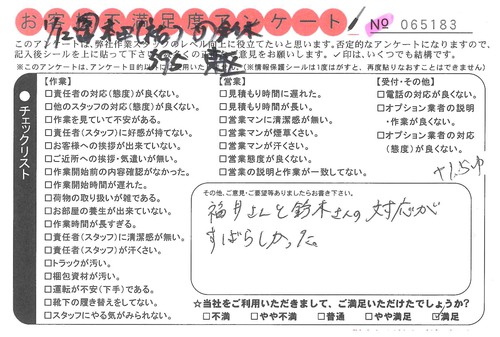 お客様不満足度アンケート
№ 065183
このアンケートは、弊社作業スタッフのレベル向上に役立てたいと思います。否定的なアンケートになりますので、
記入後シールを上に貼って下さい。
意見をお願いします。✓印は、いくつでも結構です。
(※情報保護シールは1度はがすと、再度貼りなおすことはできません)
チェックリスト
【作業】
□責任者の対応(態度)が良くない。
□他のスタッフの対応(態度)が良くない。
□作業を見ていて不安がある。
□責任者(スタッフ)に好感が持てない。
□お客様への挨拶が出来ていない。
□ご近所への挨拶・気遣いが無い。
□作業開始前の内容確認がなかった。
□作業開始時間が遅れた。
□荷物の取り扱いが雑である。
□お部屋の養生が出来ていない。
□作業時間が長すぎる。
□責任者(スタッフ)に清潔感が無い。
□責任者(スタッフ)が汗くさい。
□トラックが汚い。
□梱包資材が汚い。
□運転が不安(下手)である。
□靴下の履き替えをしてない。
□スタッフにやる気がみられない。
【営業】
□見積もり時間に遅れた。
□見積もり時間が長い。
□営業マンに清潔感が無い。
□営業マンが煙草くさい。
□営業マンが汗くさい。
□営業態度が良くない。
□営業の説明と作業が一致してない。
【受付・その他】
□電話の対応が良くない。
□オプション業者の説明
・作業が良くない。
□オプション業者の対応
(態度)が良くない。
その他、ご意見・ご要望等ありましたらお書き下さい。
福井さんと鈴木さんの対応が
すばらしかった。
☆当社をご利用いただきまして、ご満足いただけたでしょうか?
□不満 □やや不満 □普通 □やや満足 ☑満足